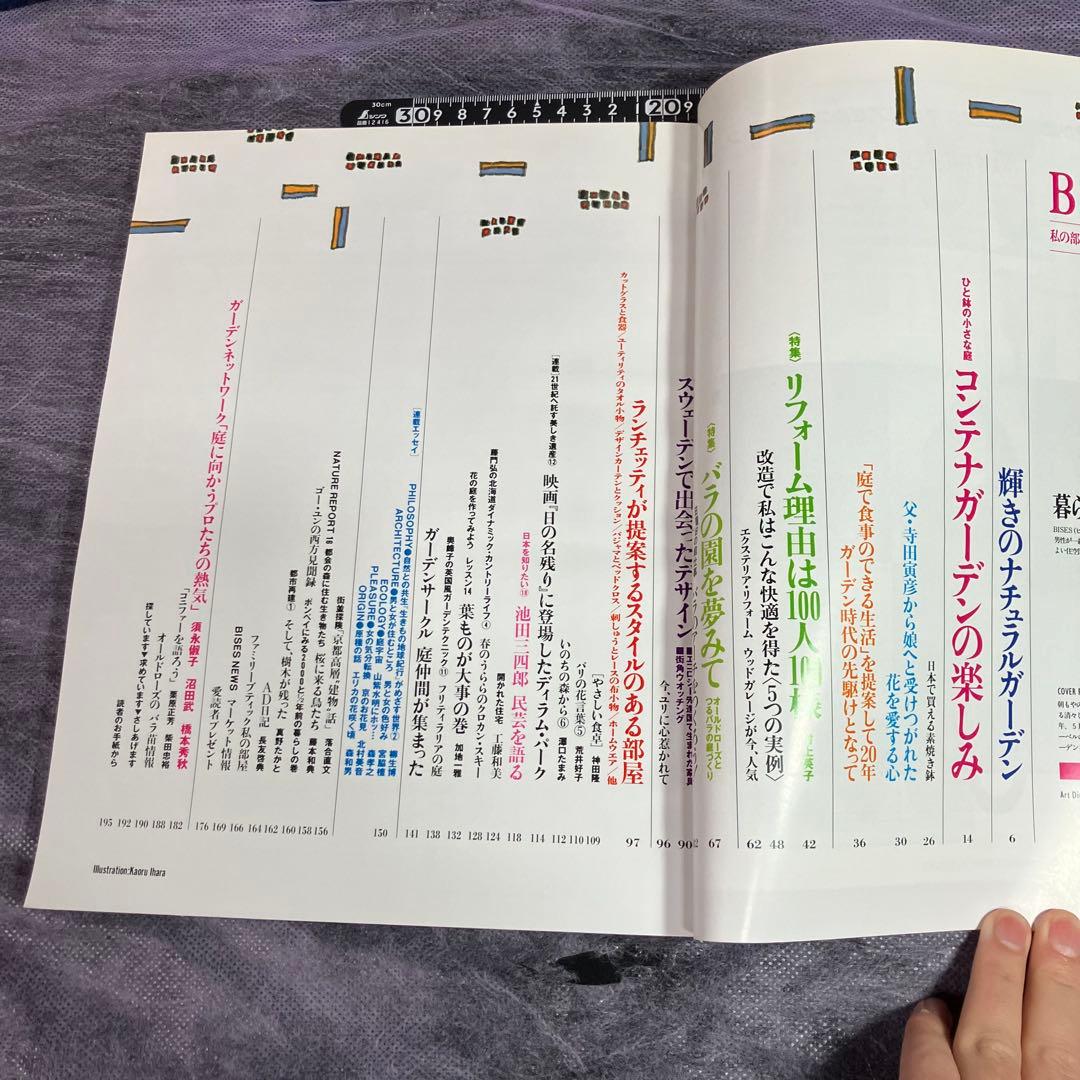 30cm
シンワ
品番12416
30 9 8 7 6 5 4 3 2 1 20 9
B
私の部
暮ら
BISES
COVER
Art Di
輝きのナチュラルガーデン
6
ひと鉢の小さな庭
コンテナガーデンの楽しみ
14
日本で買える素焼き鉢
26
父・寺田寅彦から娘へと受けつがれた
花を愛する心
30
「庭で食事のできる生活」を提案して20年
ガーデン時代の先駆けとなって
36
〈特集〉
リフォーム理由は100人
42
改造で私はこんな快適を得た〈5つの実例〉
48
エクステリア・リフォーム ウッドガレージが今、人気
62
〈特集〉
バラの園を夢みて
オールドローズと
つるバラの庭づくり
67
スウェーデンで出会ったデザイン
■街角ウオッチング
90
今、ユリに心惹かれて
96
ランチェッティが提案するスタイルのある部屋
カットグラスと食器/ユーティリティのタオル小物/デザインカーテンとクッション/パジャマとベッドクロス/刺しゅうとレースの布小物/ホームウエア/他
97
「やさしい食卓」 神田隆
109
パリの花言葉⑤ 荒井好子
110
いのちの森から⑥ 澤口たまみ
112
［連載］21世紀へ託す美しき遺産⑫
映画『日の名残り』に登場したディラム・パーク
114
日本を知りたい⑱
池田三四郎 民芸を語る
118
開かれた住宅 工藤和美
124
藤門弘の北海道ダイナミック・カントリーライフ④
春のうららのクロカン・スキー
128
花の庭を作ってみよう レッスン14
葉ものが大事の巻 加地一雅
132
奥峰子の英国風ガーデンテクニック⑪ フリティラリアの庭
138
ガーデンサークル 庭仲間が集まった
141
［連載エッセイ］
PHILOSOPHY●自然との共生、「生きもの地球紀行」がめざす世界② 柳生博
ARCHITECTURE●男と女が住むところ 男と女の色好み 宮脇檀
ECOLOGY●庭宇宙 山紫水明にホッ… 森孝之
PLEASURE●女の気分転換 京のお花見 北村美音
ORIGIN●原種の話 エリカの花咲く頃 森和男
150
街並探険「京都高層“建物”話」 落合直文
156
NATURE REPORT 16 都会の森に住む生き物たち 桜に来る鳥たち 藤本和典
158
ゴー・ユンの西方見聞録 ポンペイにみる2000と½年前の暮らしの巻
160
都市再建① そして、樹木が残った 真野たかと
162
AD日記 長友啓典
164
ファミリーブティック私の部屋
166
BISES NEWS マーケット情報
169
愛読者プレゼント
176
ガーデンネットワーク「庭に向かうプロたちの熱気」 須永俶子 沼田武 橋本秀秋
182
「コニファーを語ろう」 栗原正芳 柴田忠裕
188
オールドローズのバラ苗情報
190
探しています♥求めています♥さしあげます
192
読者のお手紙から
195
Illustration:Kaoru Ihara